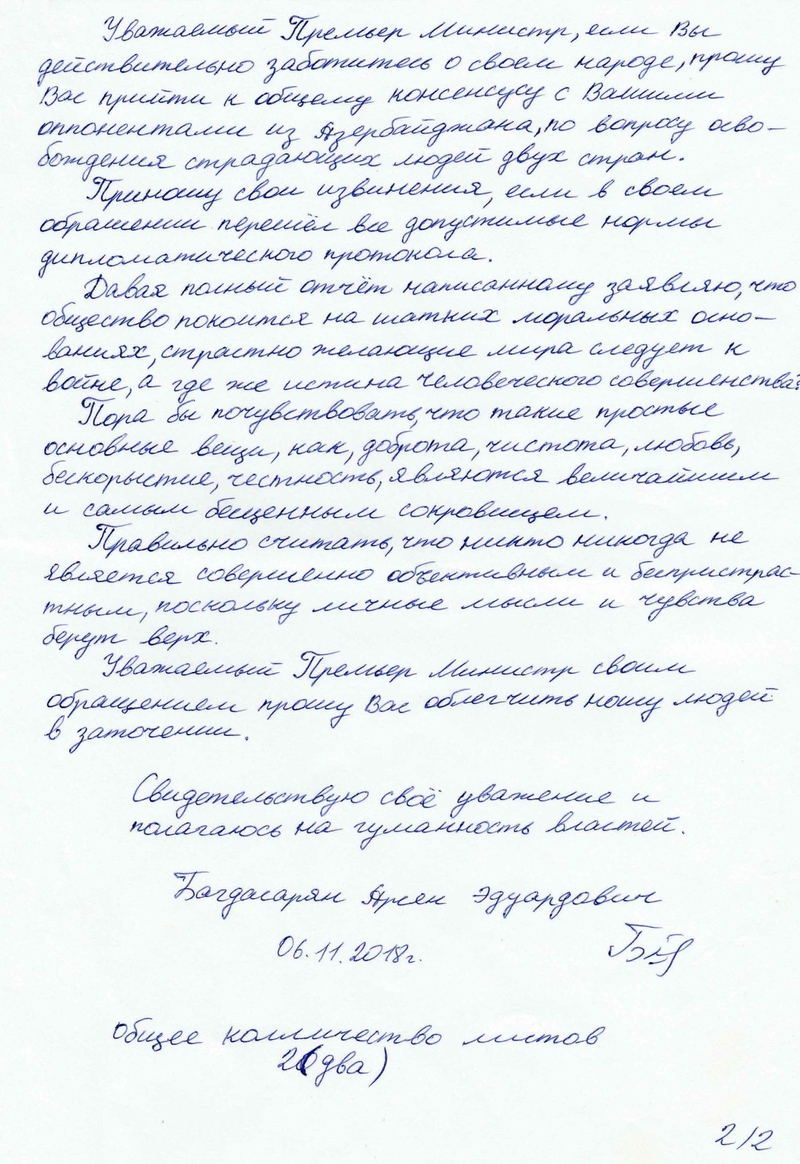 Уважаемый Премьер Министр, если Вы
действительно заботитесь о своем народе, прошу
Вас прийти к общему консенсусу с Вашими
оппонентами из Азербайджана, по вопросу осво-
бождения страдающих людей двух стран.
Приношу свои извинения, если в своем
обращении перешёл все допустимые нормы
дипломатического протокола.
Давая полный отчёт написанному заявляю, что
общество покоится на шатких моральных осно-
ваниях, страстно желающие мира следует к
войне, а где же истина человеческого совершенства?
Пора бы почувствовать, что такие простые
основные вещи, как, доброта, чистота, любовь,
бескорыстие, честность, являются величайшим
и самым бесценным сокровищем.
Правильно считать, что никто никогда не
является совершенно объективным и беспристрас-
тным, поскольку личные мысли и чувства
берут верх.
Уважаемый Премьер Министр своим
обращением прошу Вас облегчить ношу людей
в заточении.
Свидетельствую своё уважение и
полагаюсь на гуманность властей.
Багдасарян Арсен Эдуардович
06.11.2018г.
Общее колличество листов
2(два)
2/2